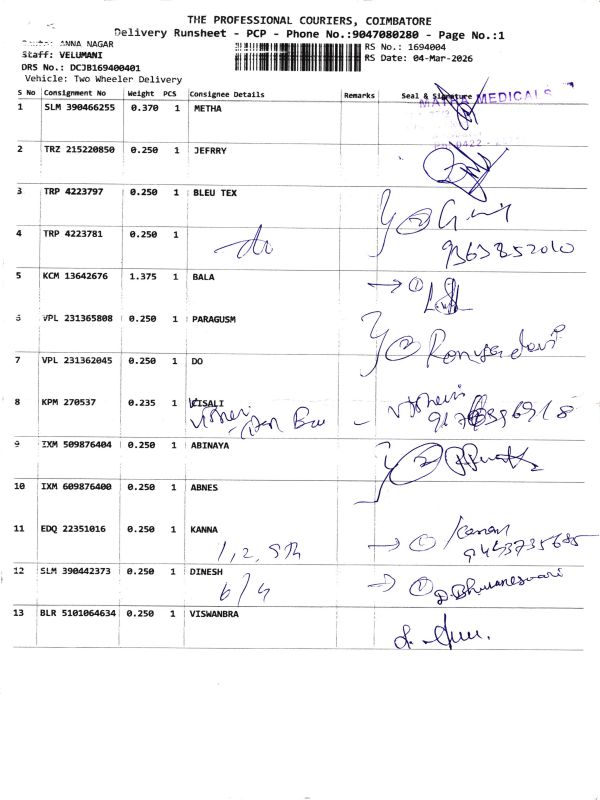 THE PROFESSIONAL COURIERS, COIMBATORE
Delivery Runsheet - PCP - Phone No.:9047080280 - Page No.:1
ANNA NAGAR
Staff: VELUMANI
DRS No.: DCJB169400401
Vehicle: Two Wheeler Delivery
RS No.: 1694004
RS Date: 04-Mar-2026
S No Consignment No Weight PCS Consignee Details Remarks Seal & Signature
MEDICALS
1 SLM 390466255 0.370 1 METHA
2 TRZ 215220850 0.250 1 JEFRRY
3 TRP 4223797 0.250 1 BLEU TEX
4 TRP 4223781 0.250 1 do
9363852010
5 KCM 13642676 1.375 1 BALA
6 VPL 231365808 0.250 1 PARAGUSM
7 VPL 231362045 0.250 1 DO
8 KPM 270537 0.235 1 VISALI
9 IXM 509876404 0.250 1 ABINAYA
10 IXM 609876400 0.250 1 ABNES
11 EDQ 22351016 0.250 1 KANNA
1, 2, 5th
9443735685
12 SLM 390442373 0.250 1 DINESH
6/4
D. Bhuvaneswari
13 BLR 5101064634 0.250 1 VISWANBRA